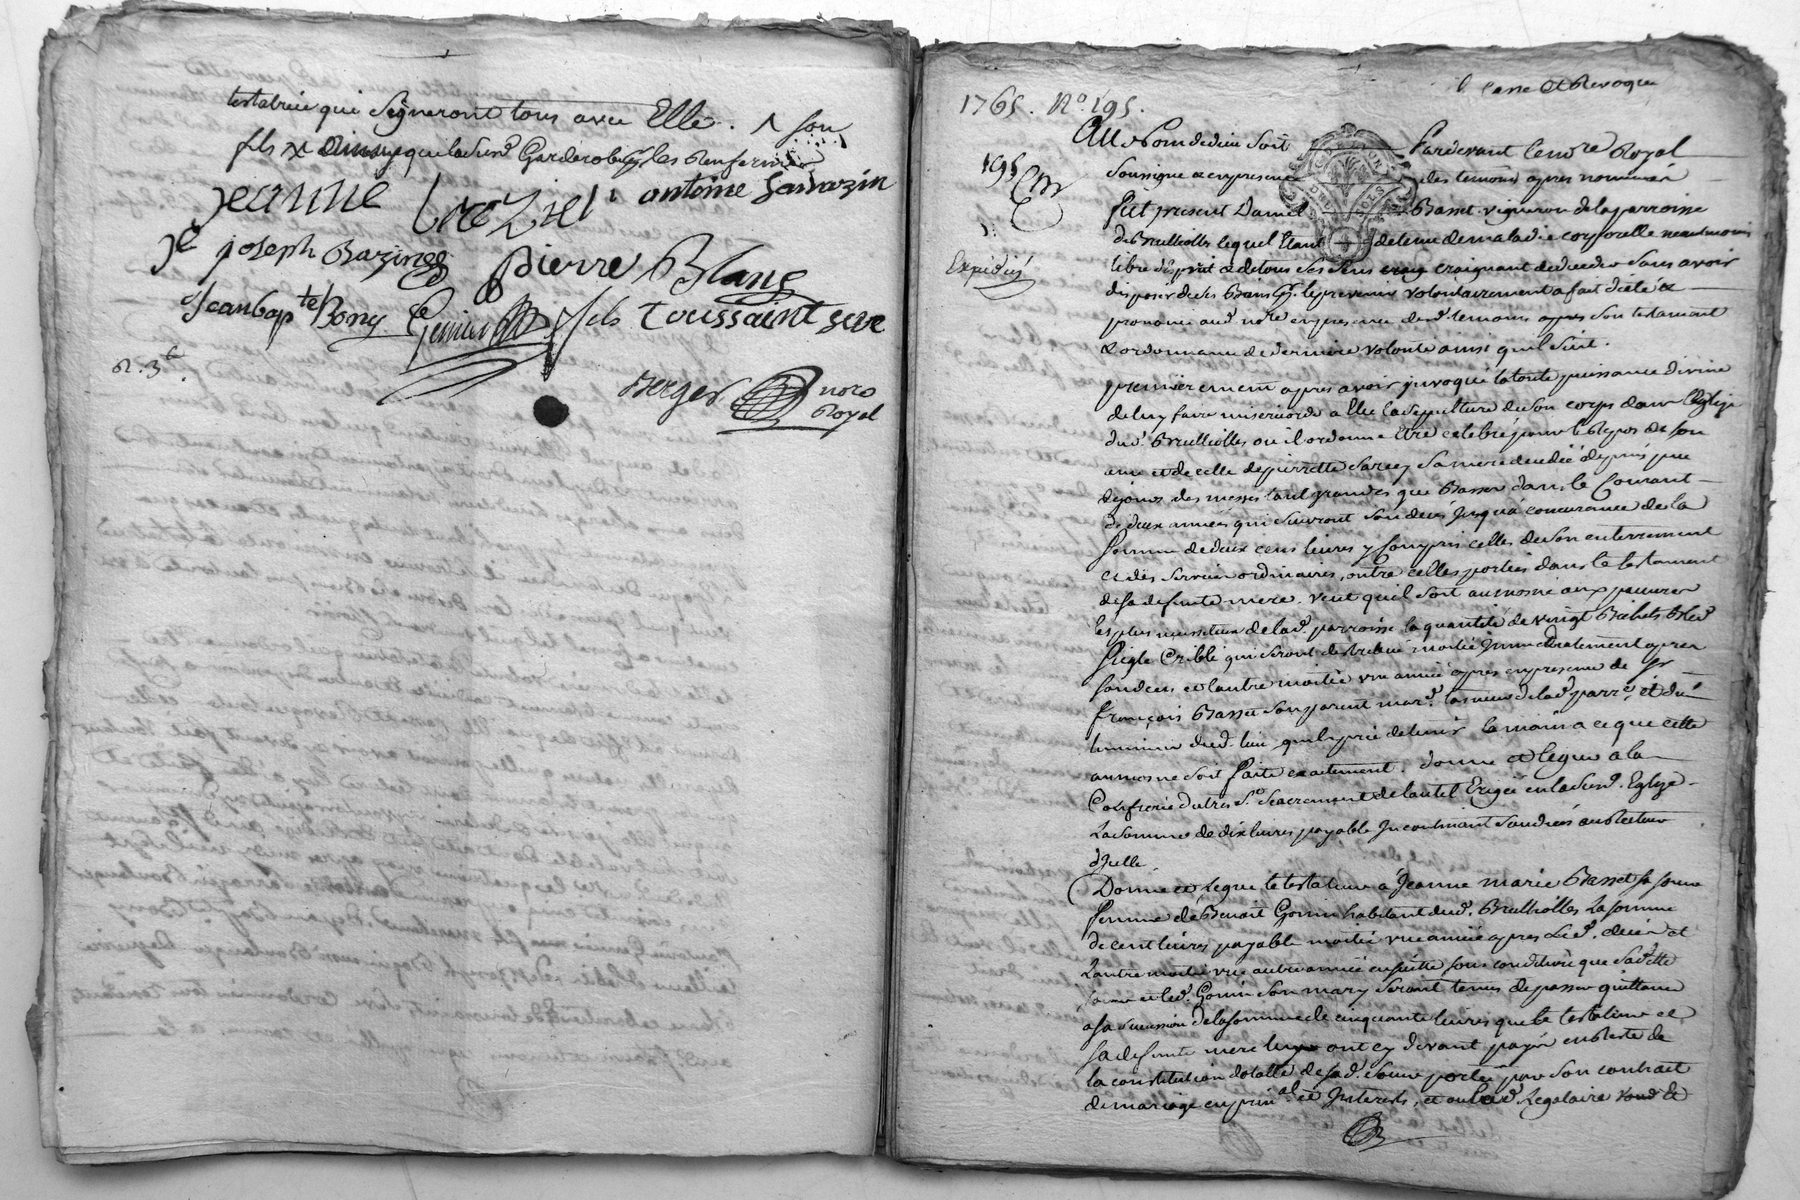 testatrice qui signeront tous avec Elle. ^ son
fils x
jeanne
antoine Sarrazin
joseph Bazin
pierre Blanc
Jean bap.te Bony
fils toussaint seve
R. 3#
Berger nore
Royal
1765. No. 195.
casse et Revoque
195
Expedié
Au Nom de dieu soit Pardevant le nore Royal
soussigné et en presence des temoins apres nommés
fut present Daniel Basset vigneron de la parroisse
de Brulliolles lequel Etant detenu de maladie corporelle neantmoins
libre d'esprit et de tous ses sens craignant de deceder sans avoir
disposé de ses Biens p. le prevenir volontairement a fait dicté et
prononcé aud. nore en presence desd. temoins apres son testament
et ordonnance de derniere volonté ainsi quil suit.
premierement apres avoir invoqué la toute puissance divine
de luy faire misericorde a Elu la sepulture de son corps dans l'Eglise
dud. Brulliolles ou il ordonne Etre celebré pour le Repos de son
ame et de celle de pierrette sa mere decedée depuis peu
de jours des messes tant grandes que Basses dans le Courant
de deux années qui suivront son deces jusqu'à concurance de la
somme de deux cens livres y compris celles de son enterrement
et des services ordinaires, outre celles portées dans le testament
de sa defunte mere. veut quil soit aumosné aux pauvres
les plus necessiteux de lad. parroisse la quantité de vingt Bichets Bled
seigle Criblé qui seront distribué moitié Immediatement apres
son deces et l'autre moitié une année apres en presence de sr
françois Basset son parent mard. de lad. parre. et du
luminier dud. lieu quil prie de tenir la main a ce que cette
aumosne soit faite exactement. donne et legue a la
Confrerie du tres St. Sacrement de l'autel Erigée en lad. Eglize
la somme de dix livres payable Incontinant son deces au Recteur
d'Icelle.
Donne et Legue le testateur a Jeanne marie Basset sa soeur
femme de Benoit Gonin habitant dud. Brulliolles la somme
de cent livres payable moitié une année apres sond. deces et
l'autre moitié une autre année ensuitte sous condition que sad.te
soeur et led. Gonin son mary seront tenus de passer quittance
a sa succession de la somme de cinquante livres que le testateur et
sa defunte mere luy ont cy devant payé en Reste de
la constitution dotalle de sad. soeur portée par son contrait
de mariage en prin.al et Interests, et au Legataire